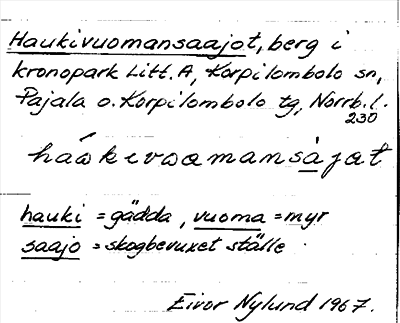 Haukivuomansaajot, berg i
kronopark Litt. A, Korpilombolo sn,
Pajala o. Korpilombolo tg, Norrb. l.
230
håkivoamansajat
hauki = gädda, vuoma = myr
saajo = skogbevuxet ställe
Eivor Nylund 1967.